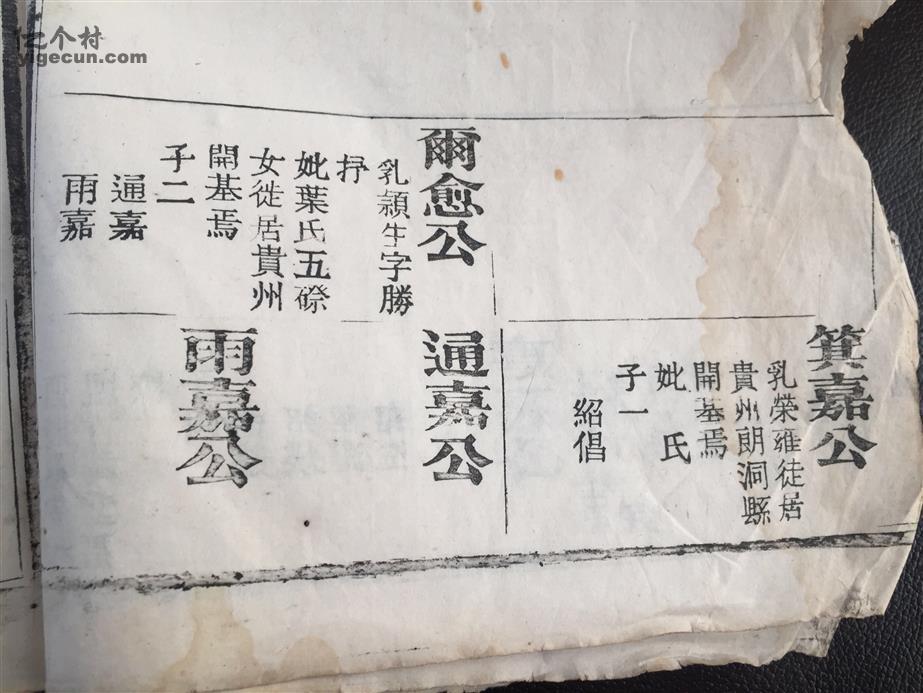 亿个村
yigecun.com
爾愈公
乳穎生字勝
抒
妣葉氏五磜
女徙居貴州
開基焉
子二
通嘉
雨嘉
箕嘉公
乳榮雍徒居
貴州朗洞縣
開基焉
妣 氏
子一
紹倡
通嘉公
雨嘉公